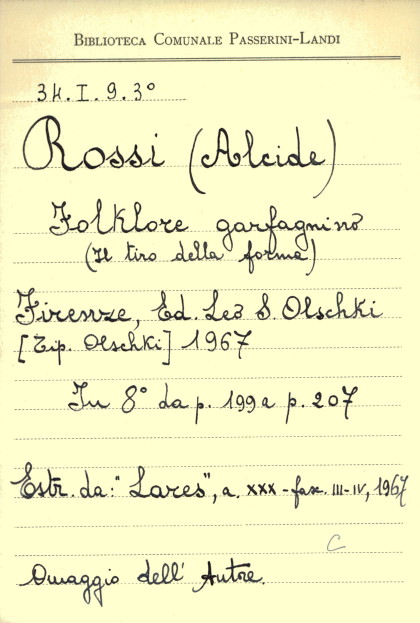 BIBLIOTECA COMUNALE PASSERINI-LANDI
34.I.9.3°
Rossi (Alcide)
Folklore garfagnino
(Il tiro della forma)
Firenze, Ed. Leo S. Olschki
[Tip. Olschki] 1967
In 8° da p. 199 a p. 207
Estr. da: "Lares", a. XXX - fasc. III-IV, 1967
C
Omaggio dell' Autore.